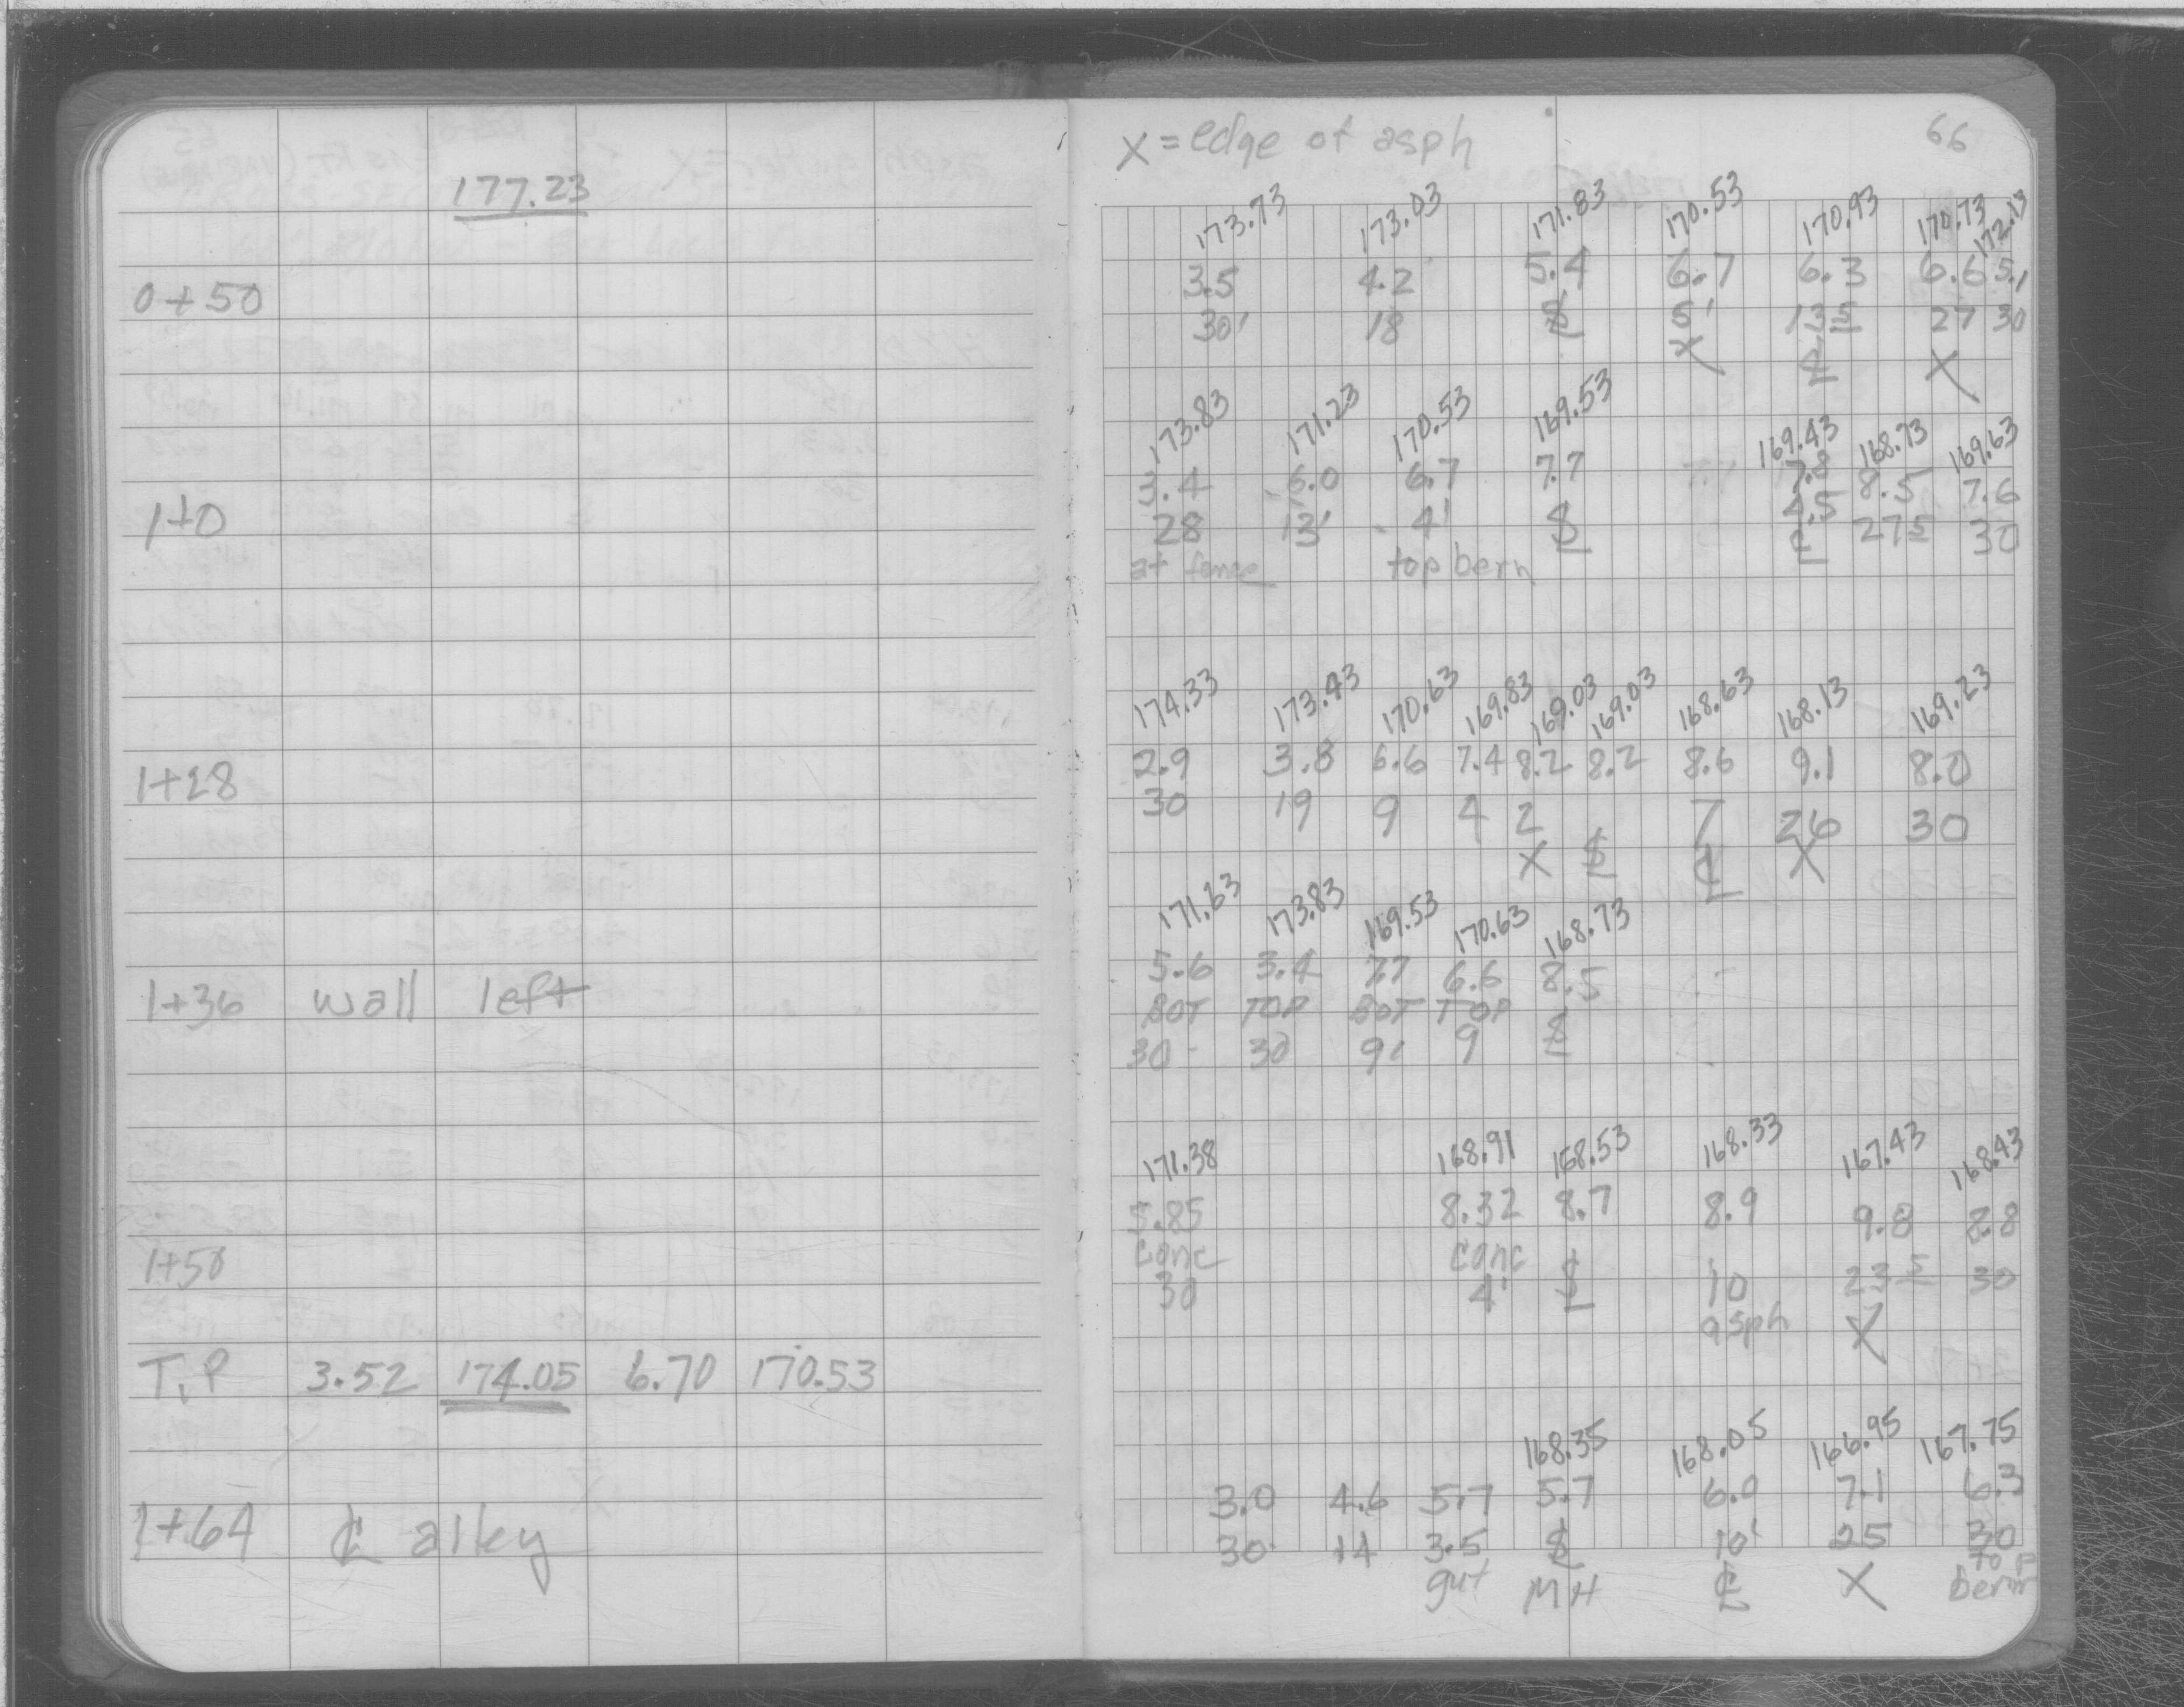 177.23
0+50
1+0
1+28
1+36 wall left
1+50
T.P 3.52 174.05 6.70 170.53
1+64 ℄ alley
X = edge of asph 66
173.73 173.03 171.83 170.53 170.93 170.73 172.13
3.5 4.2 5.4 6.7 6.3 6.6 5.1
30' 18 ℄ 5' 13 5 27 30
X ℄ X
173.83 171.23 170.53 169.53 169.43 168.73 169.63
3.4 6.0 6.7 7.7 7.8 8.5 7.6
28 13' 4' 4.5 27 5 30
at fence top berm ℄
174.33 173.43 170.63 169.83 169.03 169.03 168.63 168.13 169.23
2.9 3.8 6.6 7.4 8.2 8.2 8.6 9.1 8.0
30 19 9 4 2 7 26 30
X ℄ X
171.63 173.83 169.53 170.63 168.73
5.6 3.4 7.7 6.6 8.5
BOT TOP BOT TOP
30 30 9' 9
171.38 168.91 168.53 168.33 167.43 168.43
5.85 8.32 8.7 8.9 9.8 8.8
conc conc
30 4' 10 23 5 30
asph X
168.35 168.05 166.95 167.75
3.0 4.6 5.7 5.7 6.0 7.1 6.3
30 14 3.5 10' 25 30
gut MH ℄ X top
berm